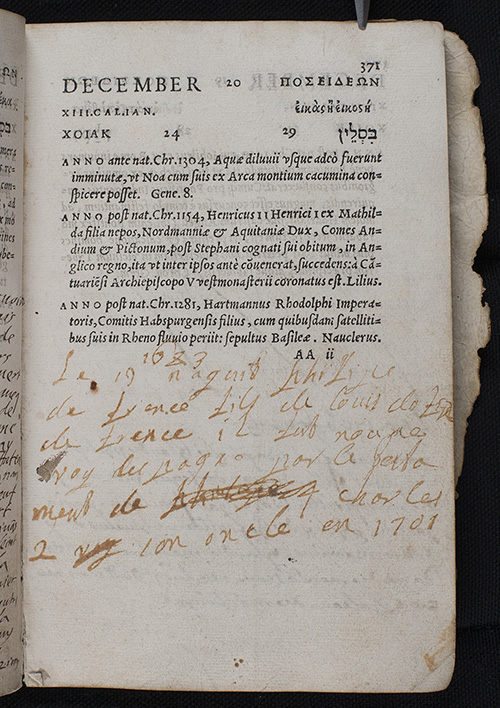 371
DECEMBER 20 ΠΟΣΕΙΔΕΩΝ
XIII. CALIAN. εἰκὰς ἢ εἰκοςὴ
ΧΟΙΑΚ 24 29 כִּסְלֵין
ANNO ante nat. Chr. 1304, Aquæ diluuii vsque adeò fuerunt
imminutæ, vt Noa cum suis ex Arca montium cacumina con-
spicere posset. Gene. 8.
ANNO post nat. Chr. 1154, Henricus II Henrici I ex Mathil-
da filia nepos, Nordmanniæ & Aquitaniæ Dux, Comes An-
dium & Pictonum, post Stephani cognati sui obitum, in An-
glico regno, ita vt inter ipsos antè cōuenerat, succedens: à Cā-
tuariēsi Archiepiscopo Vvestmonasterii coronatus est. Lilius.
ANNO post nat. Chr. 1281, Hartmannus Rhodolphi Impera-
toris, Comitis Habspurgensis filius, cum quibusdam satelliti-
bus suis in Rheno fluuio periit: sepultus Basileæ. Nauclerus.
AA ii
1683
Le 19 naquit philipe
de france fils de louis
de france il fut nomme
roy despagne par le testa
ment de charles
2 son oncle en 1701